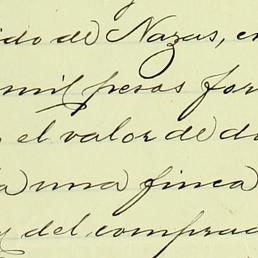 ido de Nazas, en
mil pesos for
el valor de di
la una finca
y del comprad